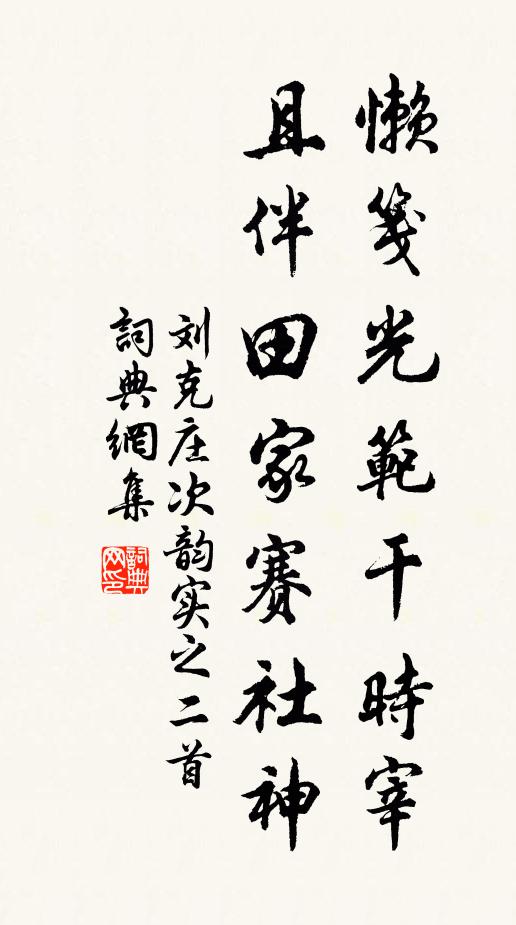 懒箋光範干時宰
且伴田家賽社神
刘克庄次韵实之二首
詞典網集
詞典网印